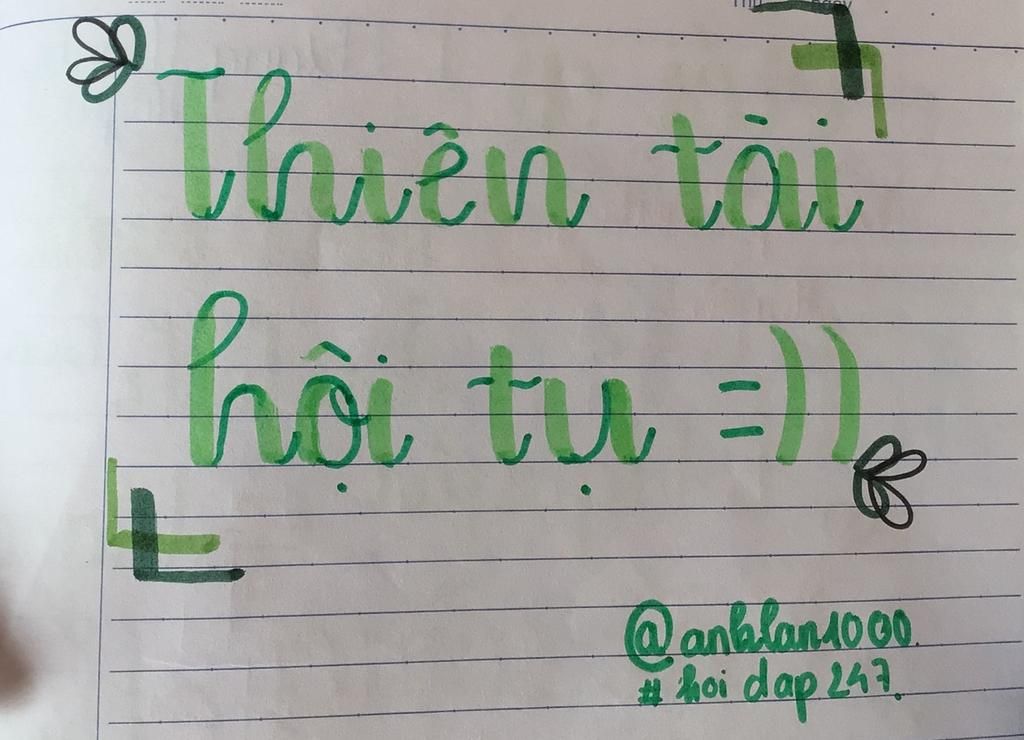 Thiên tài
hội tụ =))
@anblan1000.
# hoi dap 247.